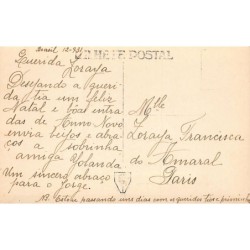 Brasil 12-931
BILHETE POSTAL
Querida Loraya
Desejando a queri-
da tia um feliz
Natal e boas entra
das de Anno Novo
envia beijos e abra
ços a sobrinha
amiga Yolanda
Um sincero abraço
para o Jorge.
Mlle
Loraya Francisca
do Amaral
Paris
NB. Estou passando uns dias com os queridos tios